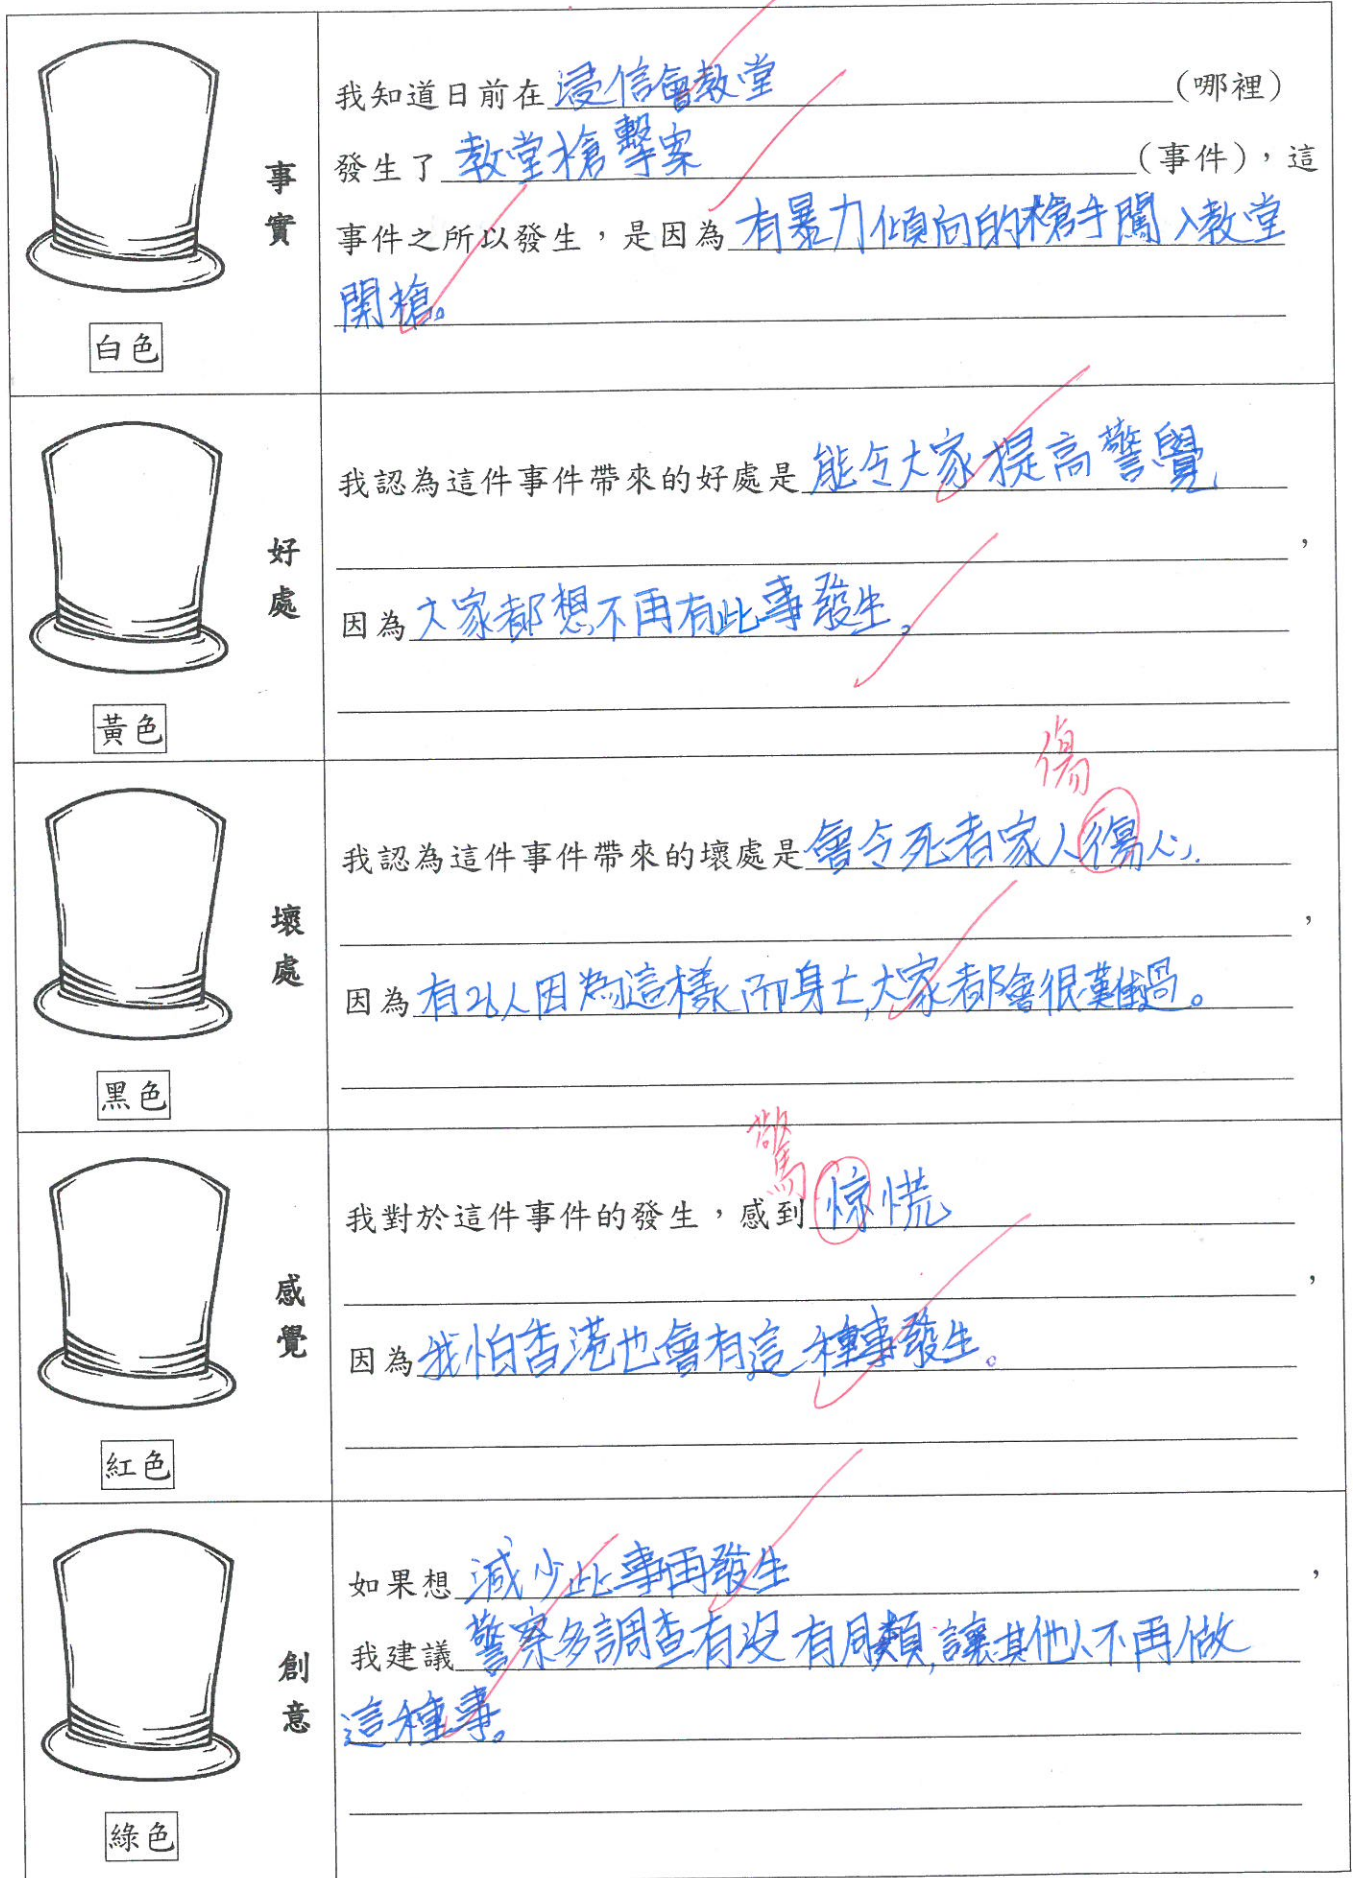 我知道日前在浸信會教堂(哪裡)
發生了教堂槍擊案(事件)，這
事實
事件之所以發生，是因為有暴力傾向的槍手闖入教堂
開槍。
白色
我認為這件事件帶來的好處是能令大家提高警覺
，
好處
因為大家都想不再有此事發生。
黃色
傷
我認為這件事件帶來的壞處是會令死者家人傷心
，
壞處
因為有26人因為這樣而身亡,大家都會很難過。
黑色
驚
我對於這件事件的發生，感到惊慌
，
感覺
因為我怕香港也會有這種事發生。
紅色
如果想減少此事再發生，
我建議警察多調查有沒有同類,讓其他人不再做
創意
這種事。
綠色